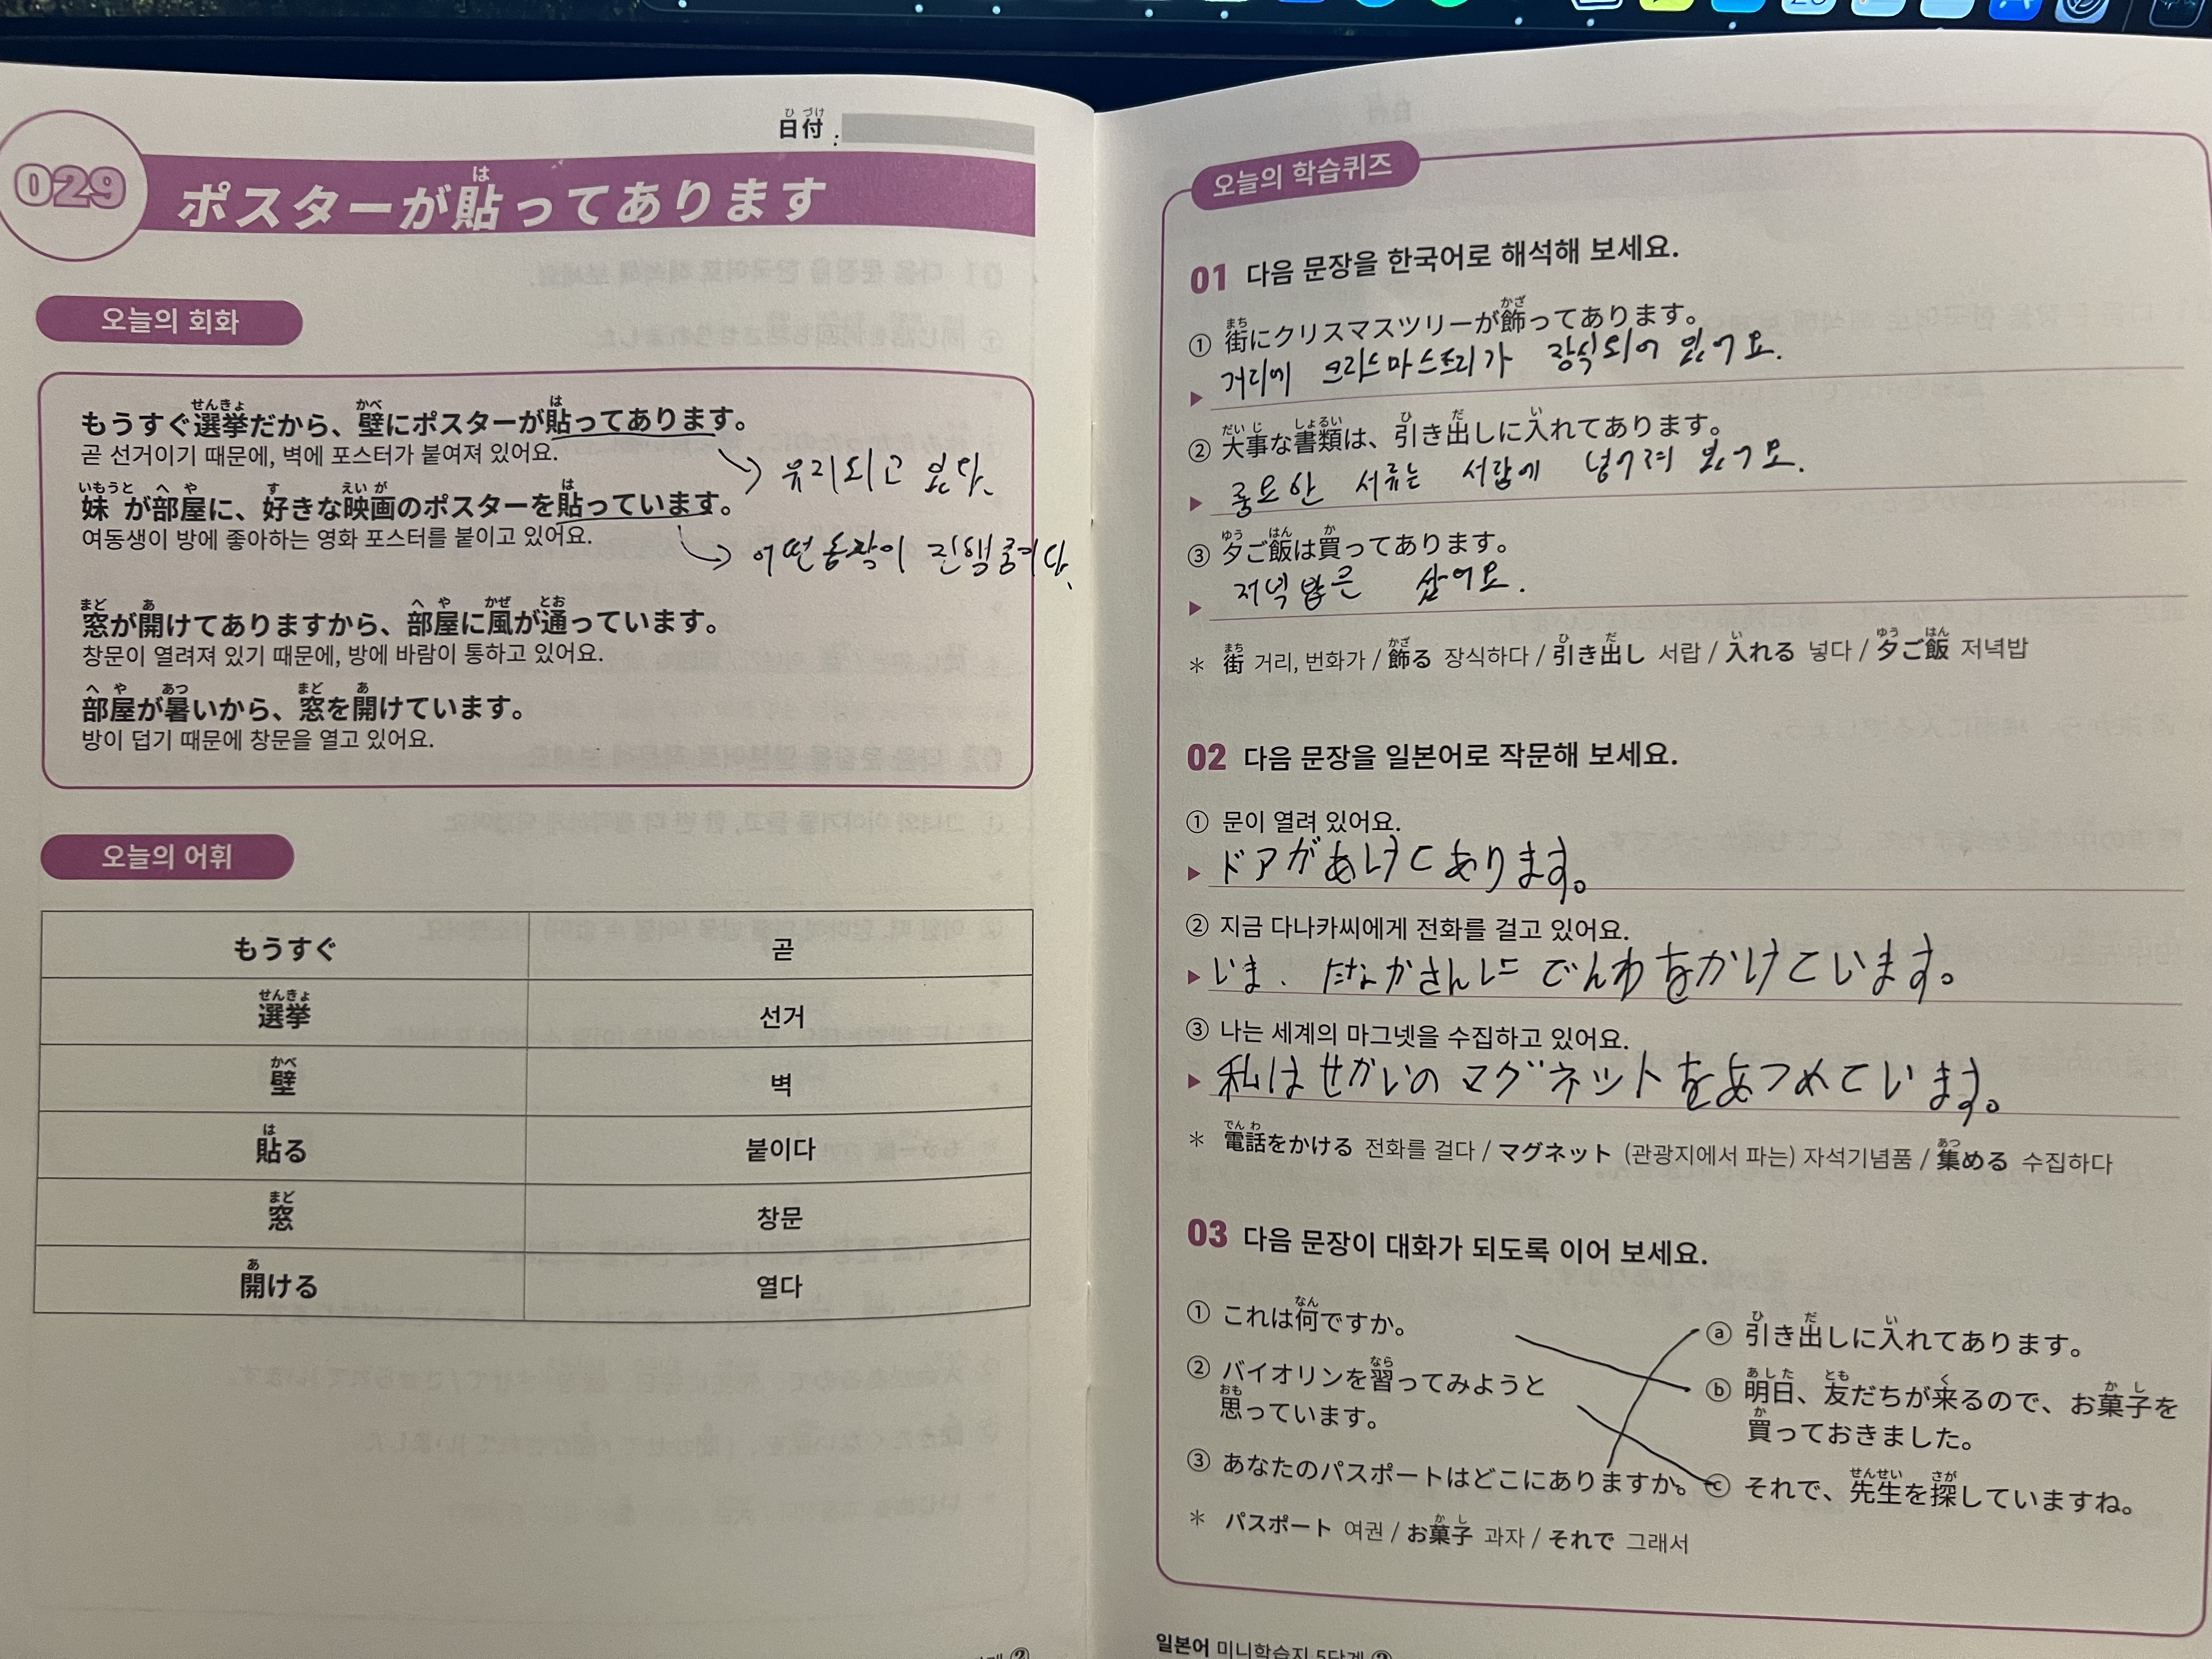 日付 :
029
ポスターが貼ってあります
오늘의 회화
もうすぐ選挙だから、壁にポスターが貼ってあります。
곧 선거이기 때문에, 벽에 포스터가 붙여져 있어요.
유지되고 있다.
妹が部屋に、好きな映画のポスターを貼っています。
여동생이 방에 좋아하는 영화 포스터를 붙이고 있어요.
어떤 동작이 진행중이다.
窓が開けてありますから、部屋に風が通っています。
창문이 열려져 있기 때문에, 방에 바람이 통하고 있어요.
部屋が暑いから、窓を開けています。
방이 덥기 때문에 창문을 열고 있어요.
오늘의 어휘
もうすぐ 곧
選挙 선거
壁 벽
貼る 붙이다
窓 창문
開ける 열다
오늘의 학습퀴즈
01 다음 문장을 한국어로 해석해 보세요.
① 街にクリスマスツリーが飾ってあります。
거리에 크리스마스트리가 장식되어 있어요.
② 大事な書類は、引き出しに入れてあります。
중요한 서류는 서랍에 넣어져 있어요.
③ 夕ご飯は買ってあります。
저녁밥은 샀어요.
* 街 거리, 번화가 / 飾る 장식하다 / 引き出し 서랍 / 入れる 넣다 / 夕ご飯 저녁밥
02 다음 문장을 일본어로 작문해 보세요.
① 문이 열려 있어요.
ドアがあけてあります。
② 지금 다나카씨에게 전화를 걸고 있어요.
いま、たなかさんに でんわをかけています。
③ 나는 세계의 마그넷을 수집하고 있어요.
私は せかいの マグネットをあつめています。
* 電話をかける 전화를 걸다 / マグネット (관광지에서 파는) 자석기념품 / 集める 수집하다
03 다음 문장이 대화가 되도록 이어 보세요.
① これは何ですか。
② バイオリンを習ってみようと
思っています。
③ あなたのパスポートはどこにありますか。
ⓐ 引き出しに入れてあります。
ⓑ 明日、友だちが来るので、お菓子を
買っておきました。
ⓒ それで、先生を探していますね。
* パスポート 여권 / お菓子 과자 / それで 그래서
일본어 미니학습지 5단계 ②